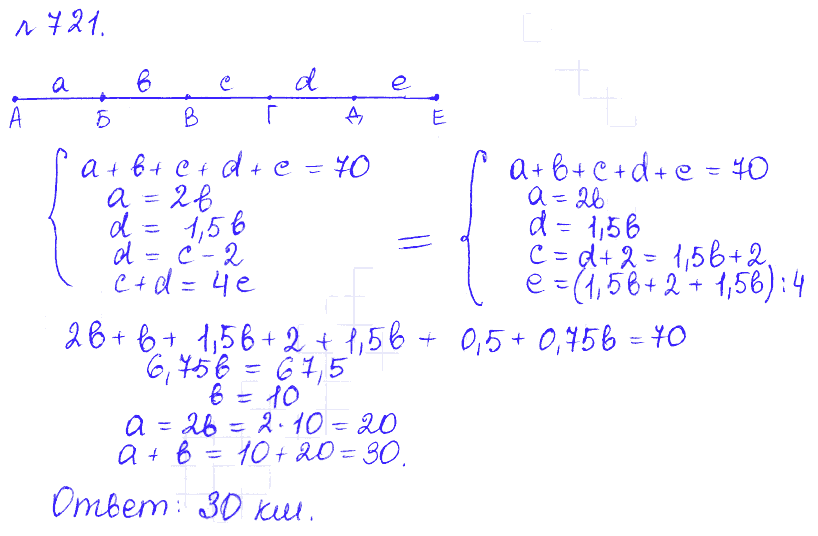 № 721.
a в c d e
А Б В Г Д Е
a + в + c + d + e = 70
a = 2в
d = 1,5в
d = c - 2
c + d = 4e
=
a + в + c + d + e = 70
a = 2в
d = 1,5в
c = d + 2 = 1,5в + 2
e = (1,5в + 2 + 1,5в) : 4
2в + в + 1,5в + 2 + 1,5в + 0,5 + 0,75в = 70
6,75в = 67,5
в = 10
a = 2в = 2 · 10 = 20
a + в = 10 + 20 = 30.
Ответ: 30 км.